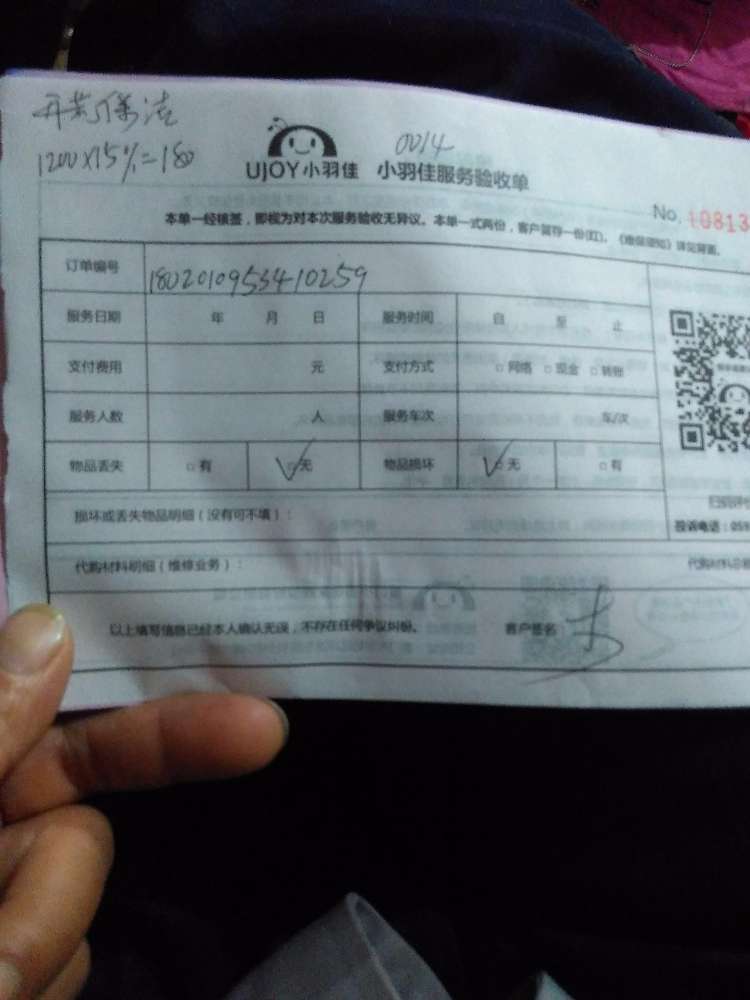 开荒保洁
1200×15%=180
0014
UJOY小羽佳 小羽佳服务验收单
No. 10813
本单一经核签，即视为对本次服务验收无异议。本单一式两份，客户留存一份(红)。《维保须知》详见背面。
订单编号 180201095341 0259
服务日期 年 月 日 服务时间 自 至 止
支付费用 元 支付方式 □网络 □现金 □转账
服务人数 人 服务车次 车/次
物品丢失 □有 ☑无 物品损坏 ☑无 □有
损坏或丢失物品明细（没有可不填）：
投诉电话：059
代购材料明细（维修业务）： 代购材料总
以上填写信息已经本人确认无误，不存在任何争议纠纷。 客户签名